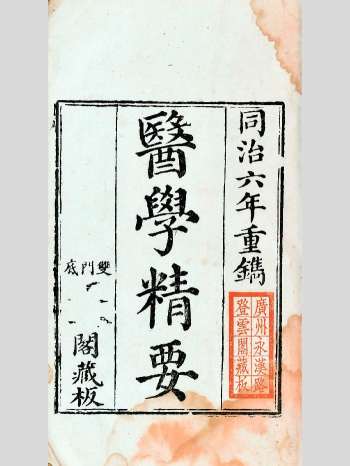 同治六年重鐫
廣州永漢路
登雲閣藏板
醫學精要
雙門底
閣藏板